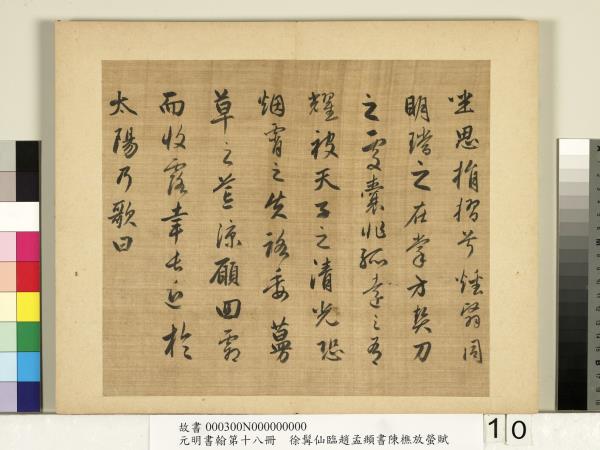 思摺兮同
明璫之在掌方契刀
之囊非孤遠之有
耀被天子之清光恐
烟霄之失路委蔓
草之荒涼願回
而收露幸長近於
太陽乃歌曰
故書 000300N000000000
元明書翰第十八冊 徐髯仙臨趙孟頫書陳樵放螢賦
10